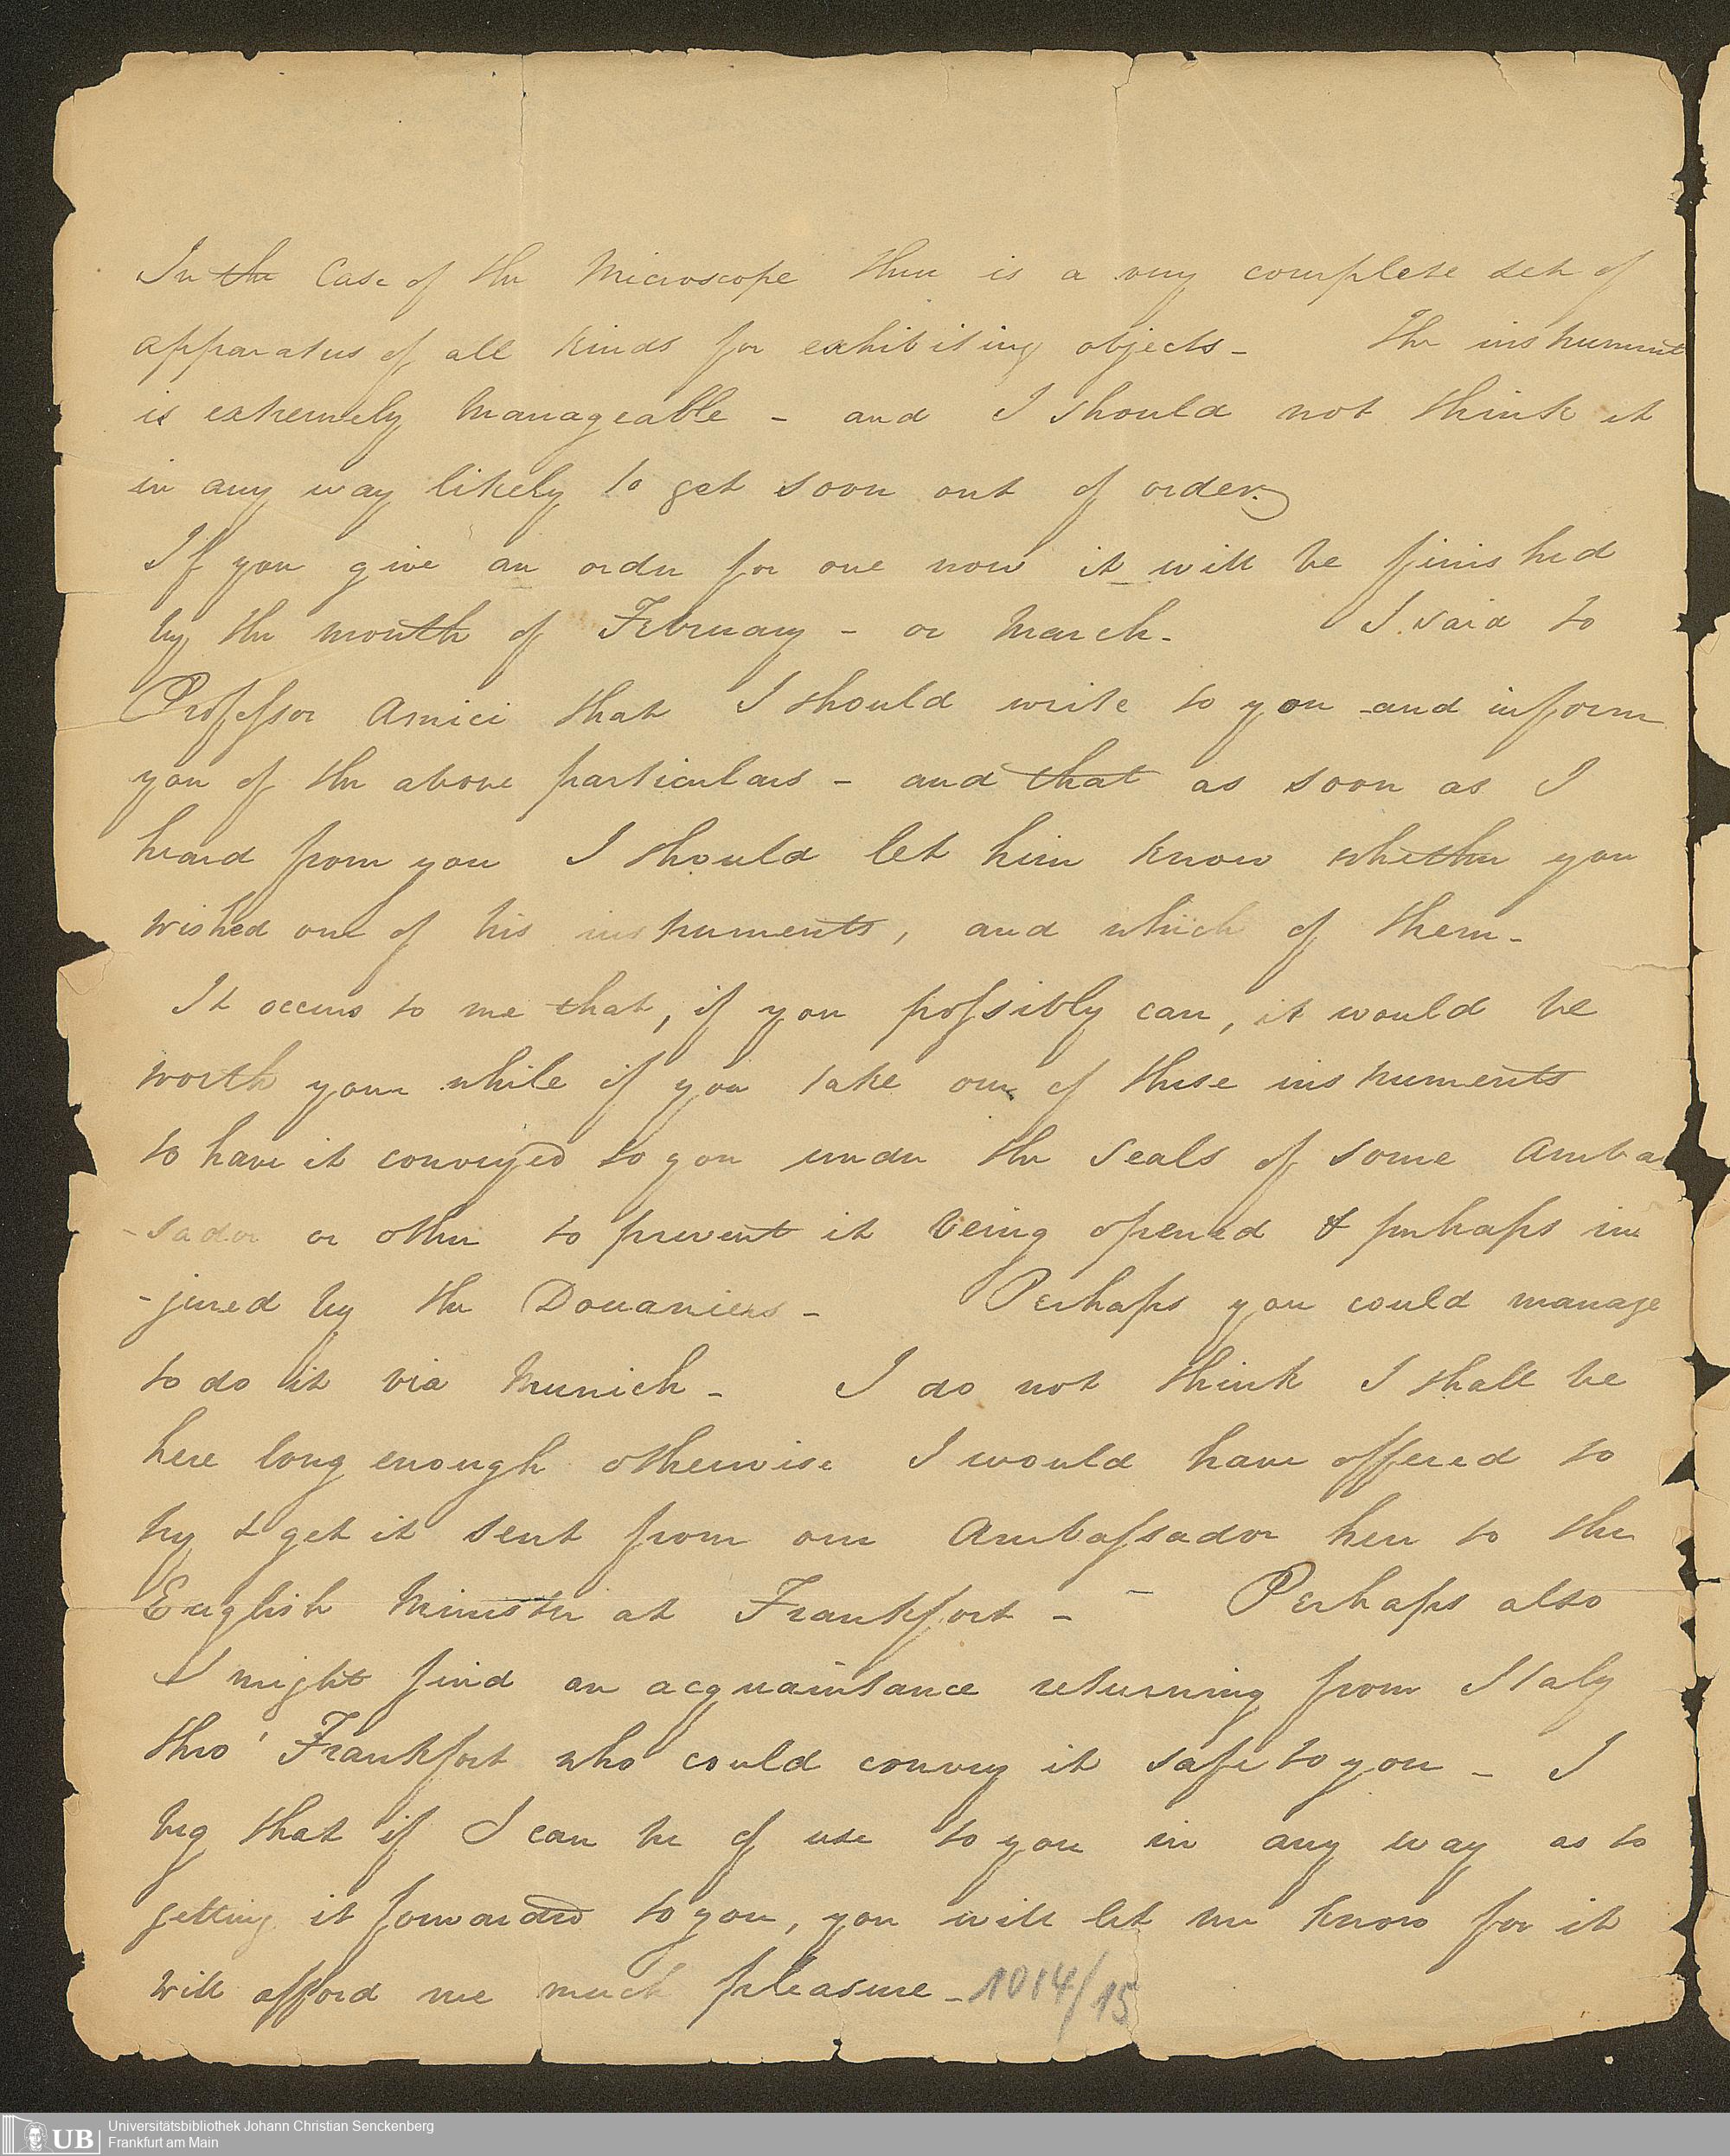 In the Case of the Microscope there is a very complete set of
apparatus of all kinds for exhibiting objects - The instrument
is extremely manageable - and I should not think it
in any way likely to get soon out of order.
If you give an order for one now it will be finished
by the month of February - or March - I said to
Professor Amici that I should write to you and inform
you of the above particulars - and that as soon as I
heard from you I should let him know whether you
wished one of his instruments, and which of them -
It occurs to me that, if you possibly can, it would be
worth your while if you take one of these instruments
to have it conveyed to you under the seals of some Amba
-sador or other to prevent it being opened & perhaps in
-jured by the Douaniers - Perhaps you could manage
to do it via Munich - I do not think I shall be
here long enough otherwise I would have offered to
try & get it sent from our Ambassador here to the
English Minister at Frankfort - Perhaps also
I might find an acquaintance returning from Italy
thro' Frankfort who could convey it safe to you - I
beg that if I can be of use to you in any way as to
getting it forwarded to you, you will let me know for it
will afford me much pleasure - 1014/15
UB Universitätsbibliothek Johann Christian Senckenberg
Frankfurt am Main